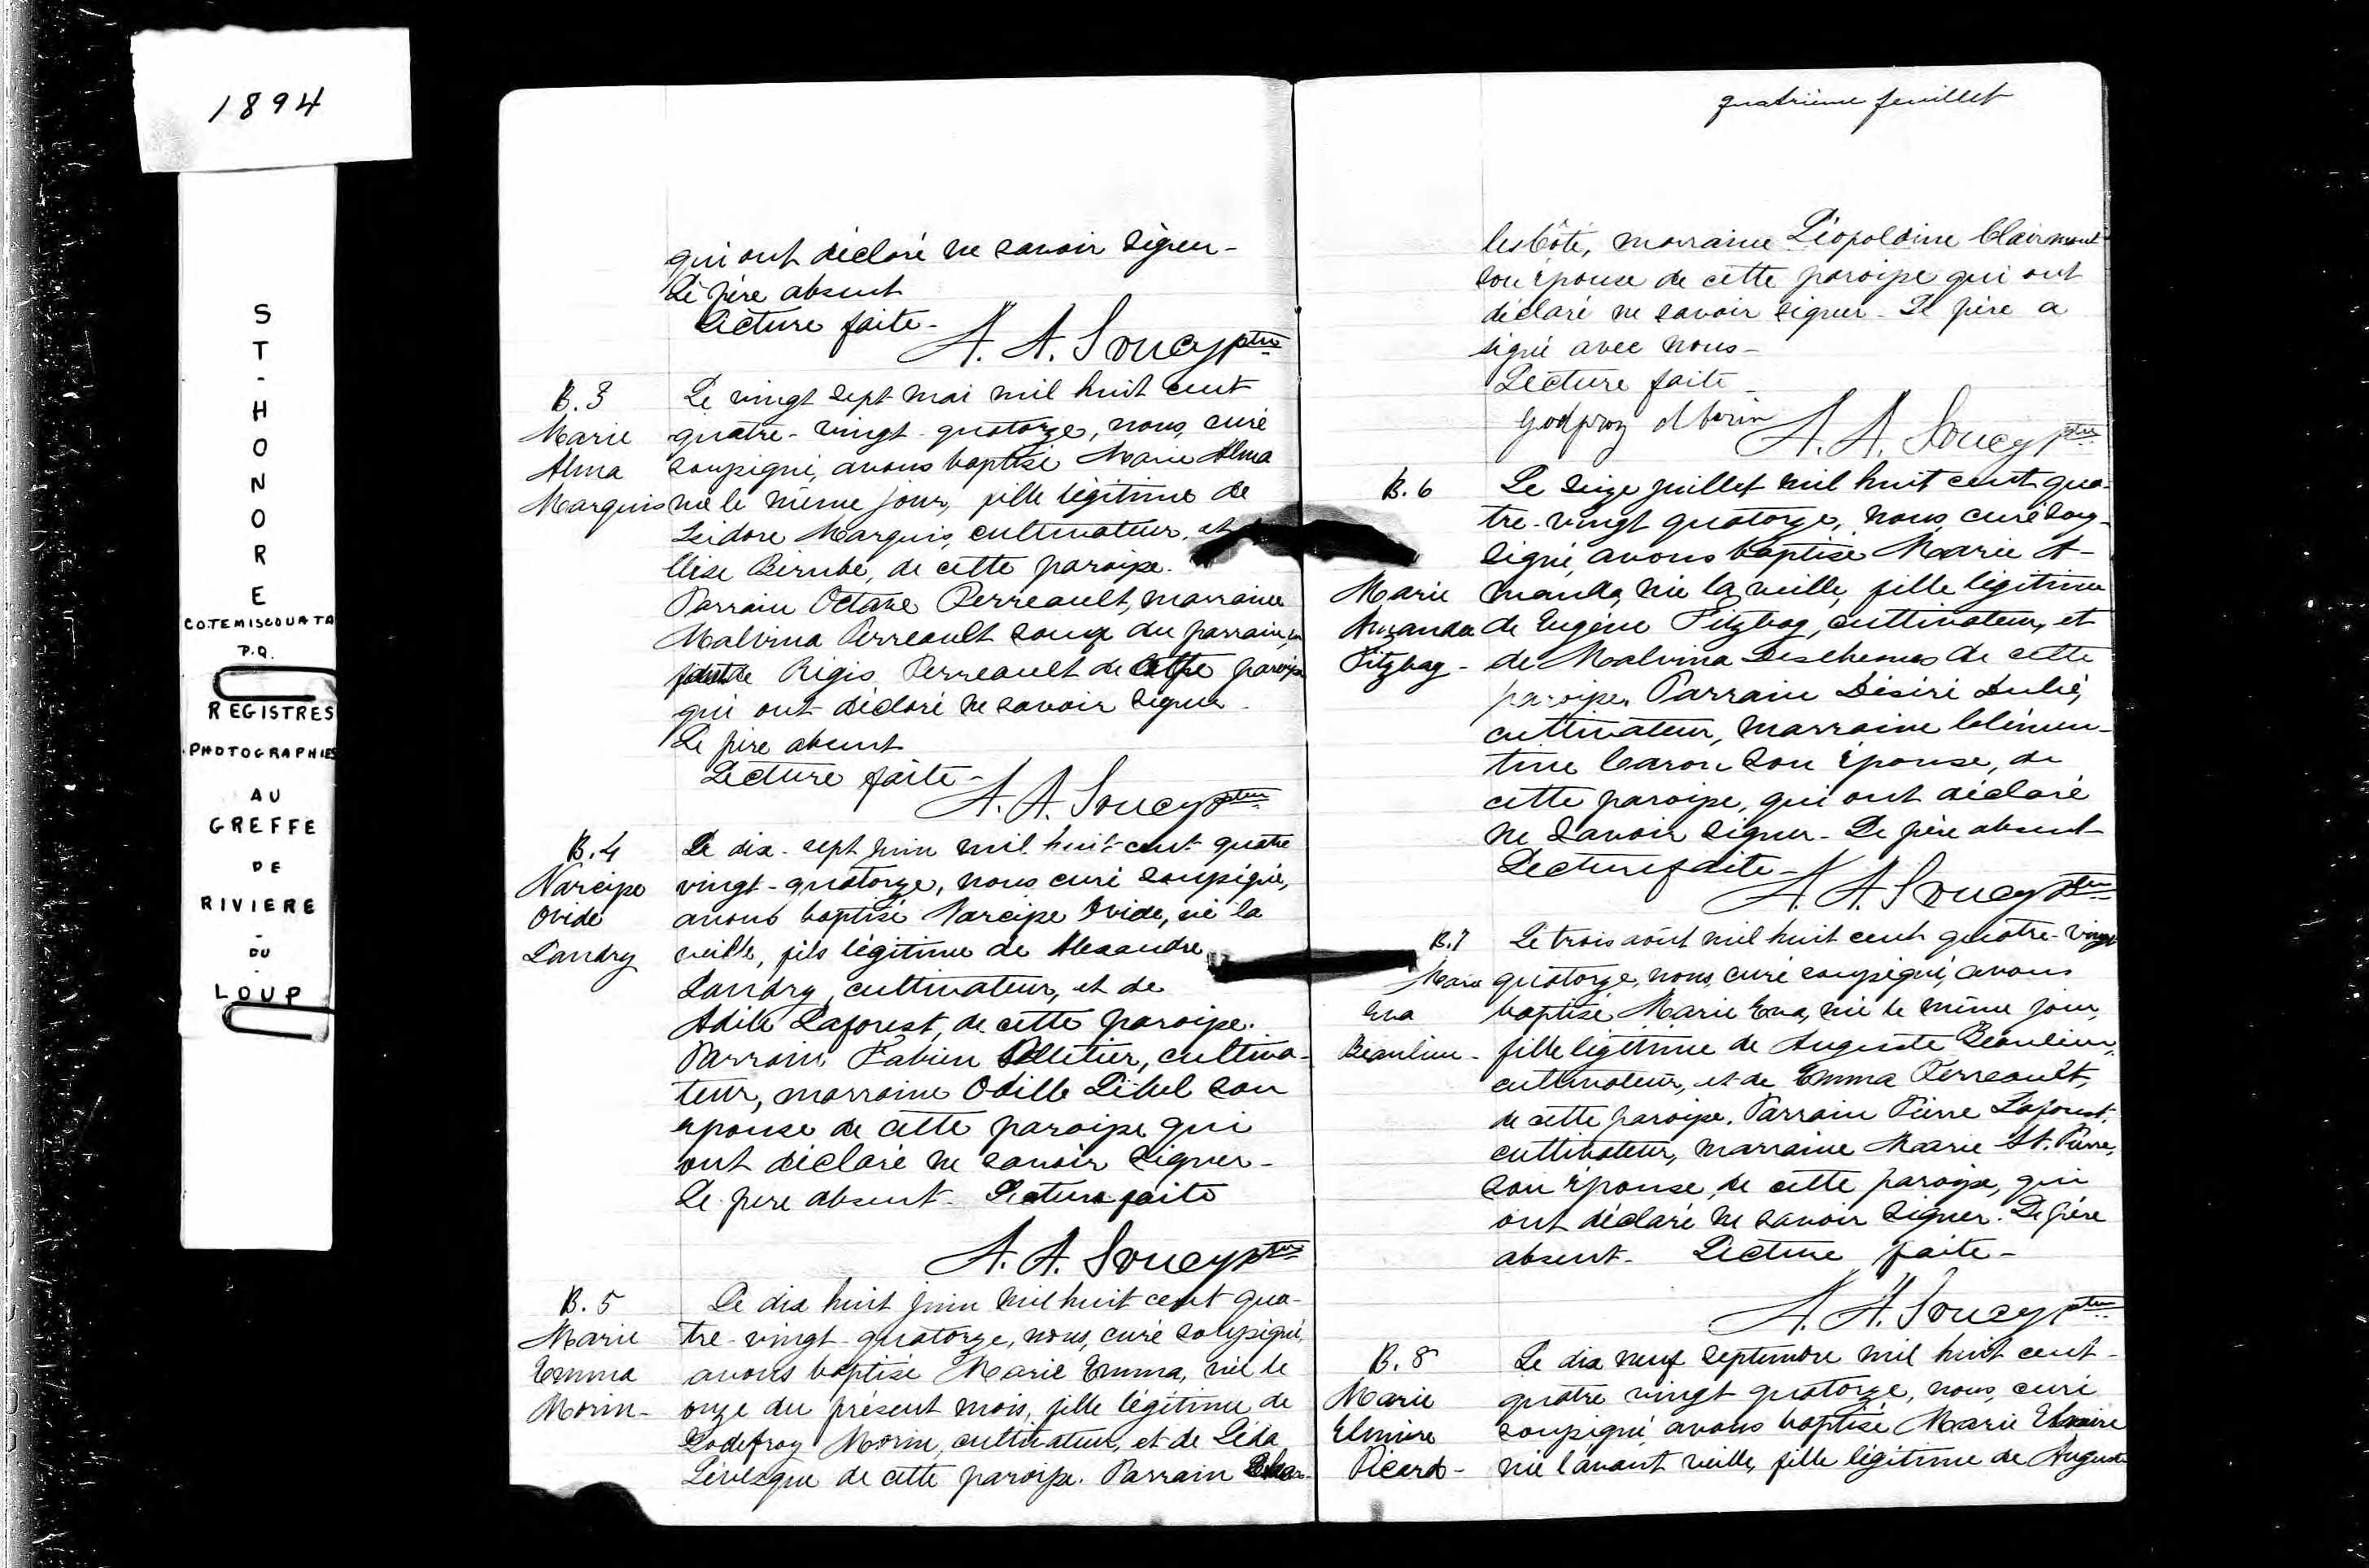 1894
ST-HONORE
CO.TEMISCOUATA
P.Q.
REGISTRES
PHOTOGRAPHIES
AU
GREFFE
DE
RIVIERE
-
DU
LOUP
qui ont déclaré ne savoir signer-
Le père absent
Lecture faite- A. A. Soucy ptre
B. 3
Marie
Alma
Marquis
Le vingt sept mai mil huit cent
quatre-vingt-quatorze, nous, curé
soussigné, avons baptisé Marie Alma
née le même jour, fille légitime de
Isidore Marquis, cultivateur, et
Elise Bérubé, de cette paroisse.
Parrain Octave Perreault, marraine
Malvina Perreault soeur du parrain,
Régis Perreault de cette paroisse
qui ont déclaré ne savoir signer-
Le père absent
Lecture faite-
A. A. Soucy ptre
B. 4
Narcisse
Ovide
Landry
Le dix-sept juin mil huit-cent quatre
vingt-quatorze, nous curé soussigné,
avons baptisé Narcisse Ovide, né la
veille, fils légitime de Alexandre
Landry, cultivateur, et de
Adèle Laforest, de cette paroisse.
Parrain Fabien Pelletier, cultiva-
teur, marraine Odille Lebel son
épouse de cette paroisse qui
ont déclaré ne savoir signer-
Le père absent- Lecture faite
A. A. Soucy ptre
B. 5
Marie
Emma
Morin-
Le dix huit juin mil huit cent qua-
tre-vingt-quatorze, nous, curé soussigné,
avons baptisé Marie Emma, née le
onze du présent mois, fille légitime de
Godefroy Morin, cultivateur, et de Léda
Lévesque de cette paroisse. Parrain Char-
quatrième feuillet
les Côté, marraine Léopoldine Clairmont
son épouse de cette paroisse qui ont
déclaré ne savoir signer- Le père a
signé avec nous-
Lecture faite-
Godfroy Morin A. A. Soucy ptre
B. 6
Marie
Amanda
Fitzbag-
Le seize juillet mil huit cent qua-
tre-vingt quatorze, nous, curé sous-
signé, avons baptisé Marie A-
manda, née la veille, fille légitime
de Eugène Fitzbag, cultivateur, et
de Malvina Deschenes de cette
paroisse. Parrain Désiré Dubé,
cultivateur, marraine Clémen-
tine Caron son épouse, de
cette paroisse, qui ont déclaré
ne savoir signer- Le père absent
Lecture faite-
A. A. Soucy ptre
B. 7
Marie
Eva
Beaulieu-
Le trois août mil huit cent quatre-vingt
quatorze, nous, curé soussigné, avons
baptisé Marie Eva, née le même jour,
fille légitime de Auguste Beaulieu,
cultivateur, et de Emma Perreault,
de cette paroisse. Parrain Pierre Laforest,
cultivateur, marraine Marie St. Pierre,
son épouse, de cette paroisse, qui
ont déclaré ne savoir signer. Le père
absent- Lecture faite-
A. A. Soucy ptre
B. 8
Marie
Elmire
Picard-
Le dix neuf septembre mil huit cent-
quatre vingt quatorze, nous, curé
soussigné avons baptisé Marie Elmire
née l'avant veille, fille légitime de Auguste